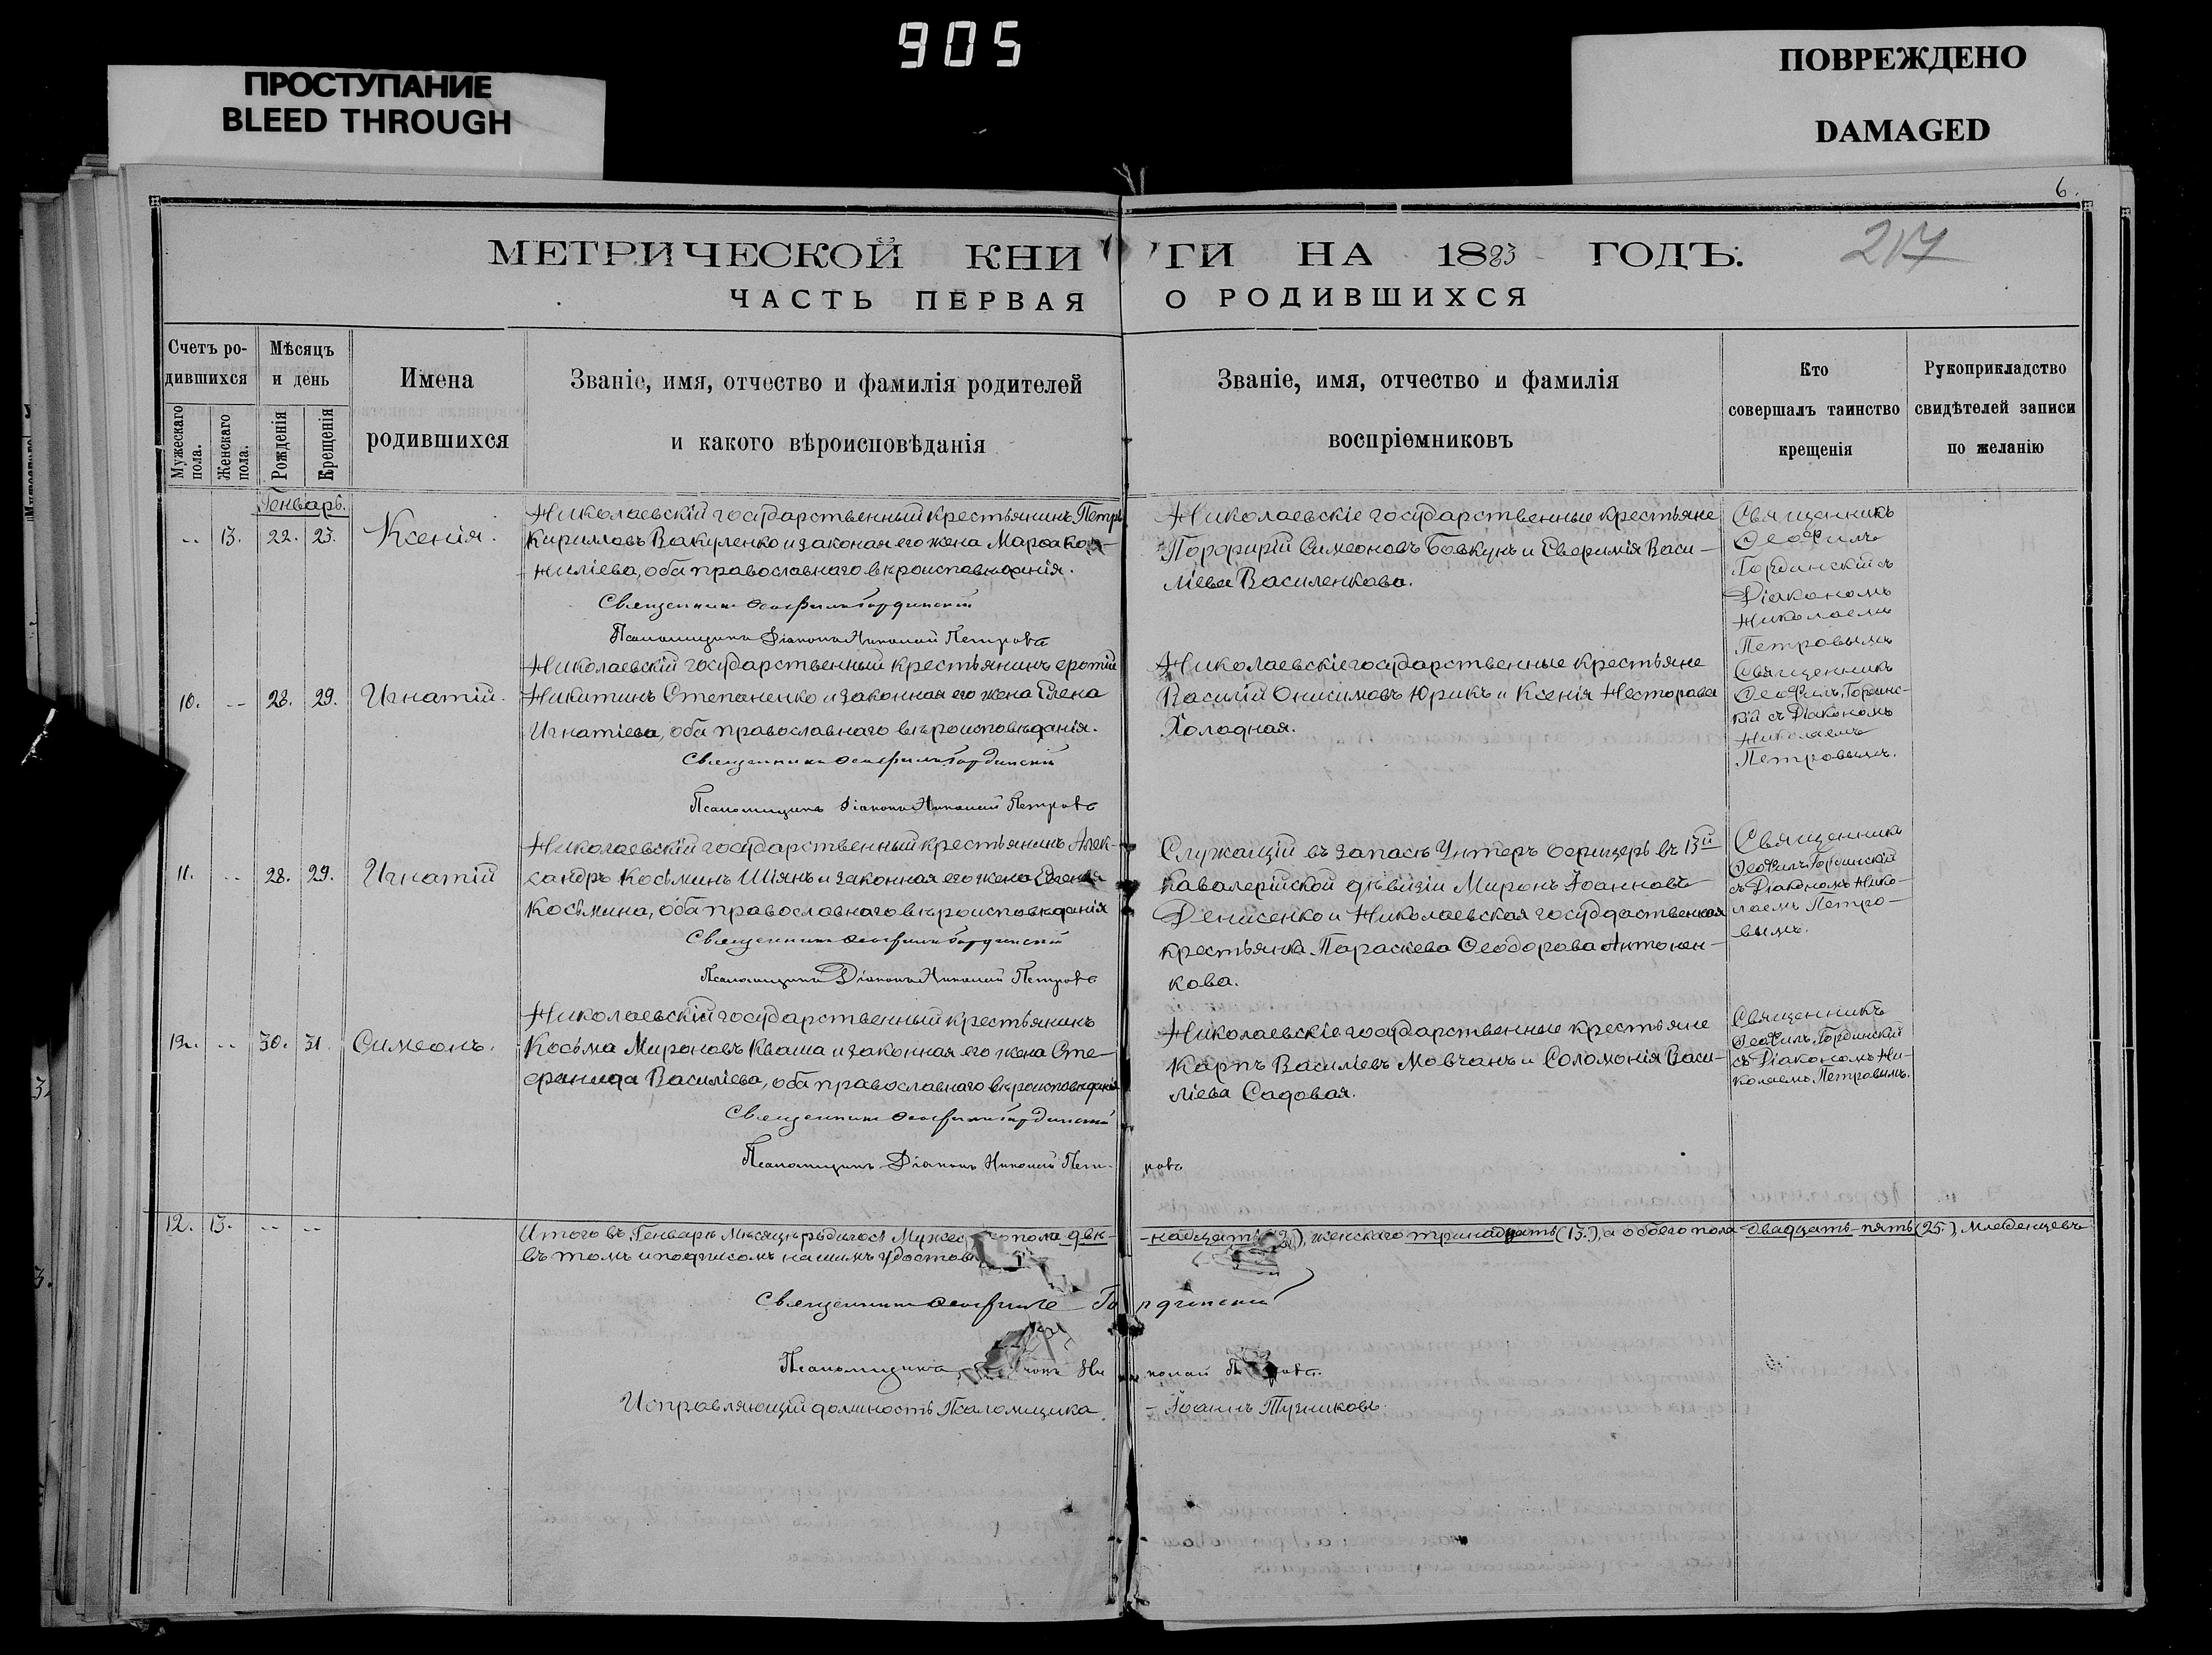 905
ПРОСТУПАНИЕ
BLEED THROUGH
ПОВРЕЖДЕНО
DAMAGED
6.
217
МЕТРИЧЕСКОЙ КНИГИ НА 1893 ГОДЪ.
ЧАСТЬ ПЕРВАЯ О РОДИВШИХСЯ
Счетъ ро-
дившихся
Мужескаго
пола.
Женскаго
пола.
Мѣсяцъ
и день
Рожденія
Крещенія
Имена
родившихся
Званіе, имя, отчество и фамилія родителей
и какого вѣроисповѣданія
Званіе, имя, отчество и фамилія
воспріемниковъ
Кто
совершалъ таинство
крещенія
Рукоприкладство
свидѣтелей записи
по желанію
Генварь.
-- 13. 22. 23. Ксенія.
Николаевскій государственный крестьянинъ Петръ
Кирилловъ Вакуленко и законая его жена Марѳа Кор-
нилiева, оба православнаго вѣроисповѣданія.
Священникъ Ѳеофилъ Гординскій
Псаломщикъ Діаконъ Николай Петровъ
Николаевскіе государственные крестьяне
Порфирій Симеоновъ Бовкунъ и Евфимія Васи-
ліева Василенкова.
Священникъ
Ѳеофилъ
Гординскій съ
Діакономъ
Николаемъ
Петровымъ
10. -- 28. 29. Игнатій.
Николаевскій государственный крестьянинъ Фотій
Никитинъ Степаненко и законная его жена Елена
Игнатіева, оба православнаго вѣроисповѣданія.
Священникъ Ѳеофилъ Гординскій
Псаломщикъ Діаконъ Николай Петровъ
Николаевскіе государственные крестьяне
Василій Онисимовъ Юрикъ и Ксенія Несторова
Холодная.
Священникъ
Ѳеофилъ Гординс-
кій съ Діакономъ
Николаемъ
Петровымъ.
11. -- 28. 29. Игнатій
Николаевскій государственный крестьянинъ Алек-
сандръ Косьминъ Шіянъ и законная его жена
Косьмина, оба православнаго вѣроисповѣданія
Священникъ Ѳеофилъ Гординскій
Псаломщикъ Діаконъ Николай Петровъ
Служащій въ запасѣ Унтеръ офицеръ въ 13й
Кавалерійской дѣвизіи Миронъ Іоанновъ
Денисенко и Николаевская государственная
крестьянка Параскева Ѳеодорова Антонен-
кова.
Священникъ
Ѳеофилъ Гординскій
съ Діакономъ Нико-
лаемъ Петро-
вымъ.
12. -- 30. 31. Симеонъ.
Николаевскій государственный крестьянинъ
Косьма Мироновъ Кваша и законная его жена Сте-
фанида Василіева, оба православнаго вѣроисповѣданія
Священникъ Ѳеофилъ Гординскій
Псаломщикъ Діаконъ Николай Петровъ
Николаевскіе государственные крестьяне
Карпъ Василіевъ Мовчанъ и Соломонія Васи-
ліева Садовая.
Священникъ
Ѳеофилъ Гординскій
съ Діакономъ Ни-
колаемъ Петровымъ.
12. 13. -- --
Итого въ Генварѣ мѣсяцѣ родилось мужес пола двѣ-надцать (12), женскаго тринадцать (13.), а обоего пола двадцать-пять (25.), младенцевъ
въ томъ и подписомъ нашимъ удостов
Священникъ Ѳеофилъ Гординскій
Псаломщикъ Николай
Исправляющій должность Псаломщика - Іоаннъ Пузниковъ